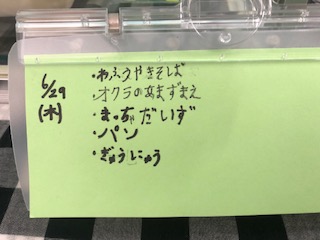 6/29
(木)
・わふうやきそば
・オクラのあまずあえ
・まっちゃだいず
・パン
・ぎゅうにゅう